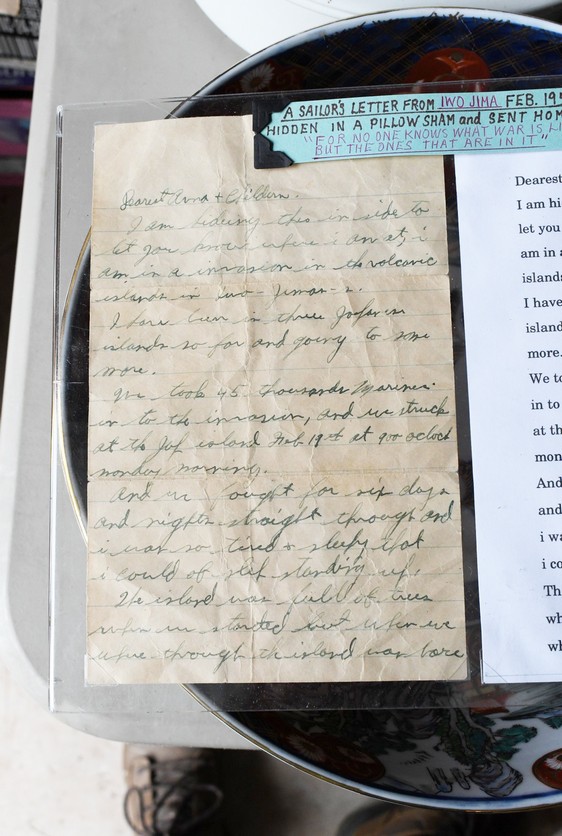 A SAILOR'S LETTER FROM IWO JIMA FEB. 19
HIDDEN IN A PILLOW SHAM and SENT HOM
"FOR NO ONE KNOWS WHAT WAR IS LI
BUT THE ONES THAT ARE IN IT"
Dearest Anna + Children.
I am hiding this in side to
let you know where i am at, i
am in a invasion in the volcanic
islands in Iwo-Jiman-s.
I have been in three Japanese
islands so far and going to some
more.
We took 45 thousands Marines
in to the invasion, and we struck
at the Jap island Feb 19th at 9oo oclock
monday morning.
And we fought for six days
and nights straight through and
i was so tired + sleepy that
i could of slep standing up.
The island was full of trees
when we started but when we
where through the island was bare
Dearest
I am hi
let you
am in a
islands
I have
island
more.
We to
in to
at th
mon
And
and
i wa
i co
Th
wh
wh